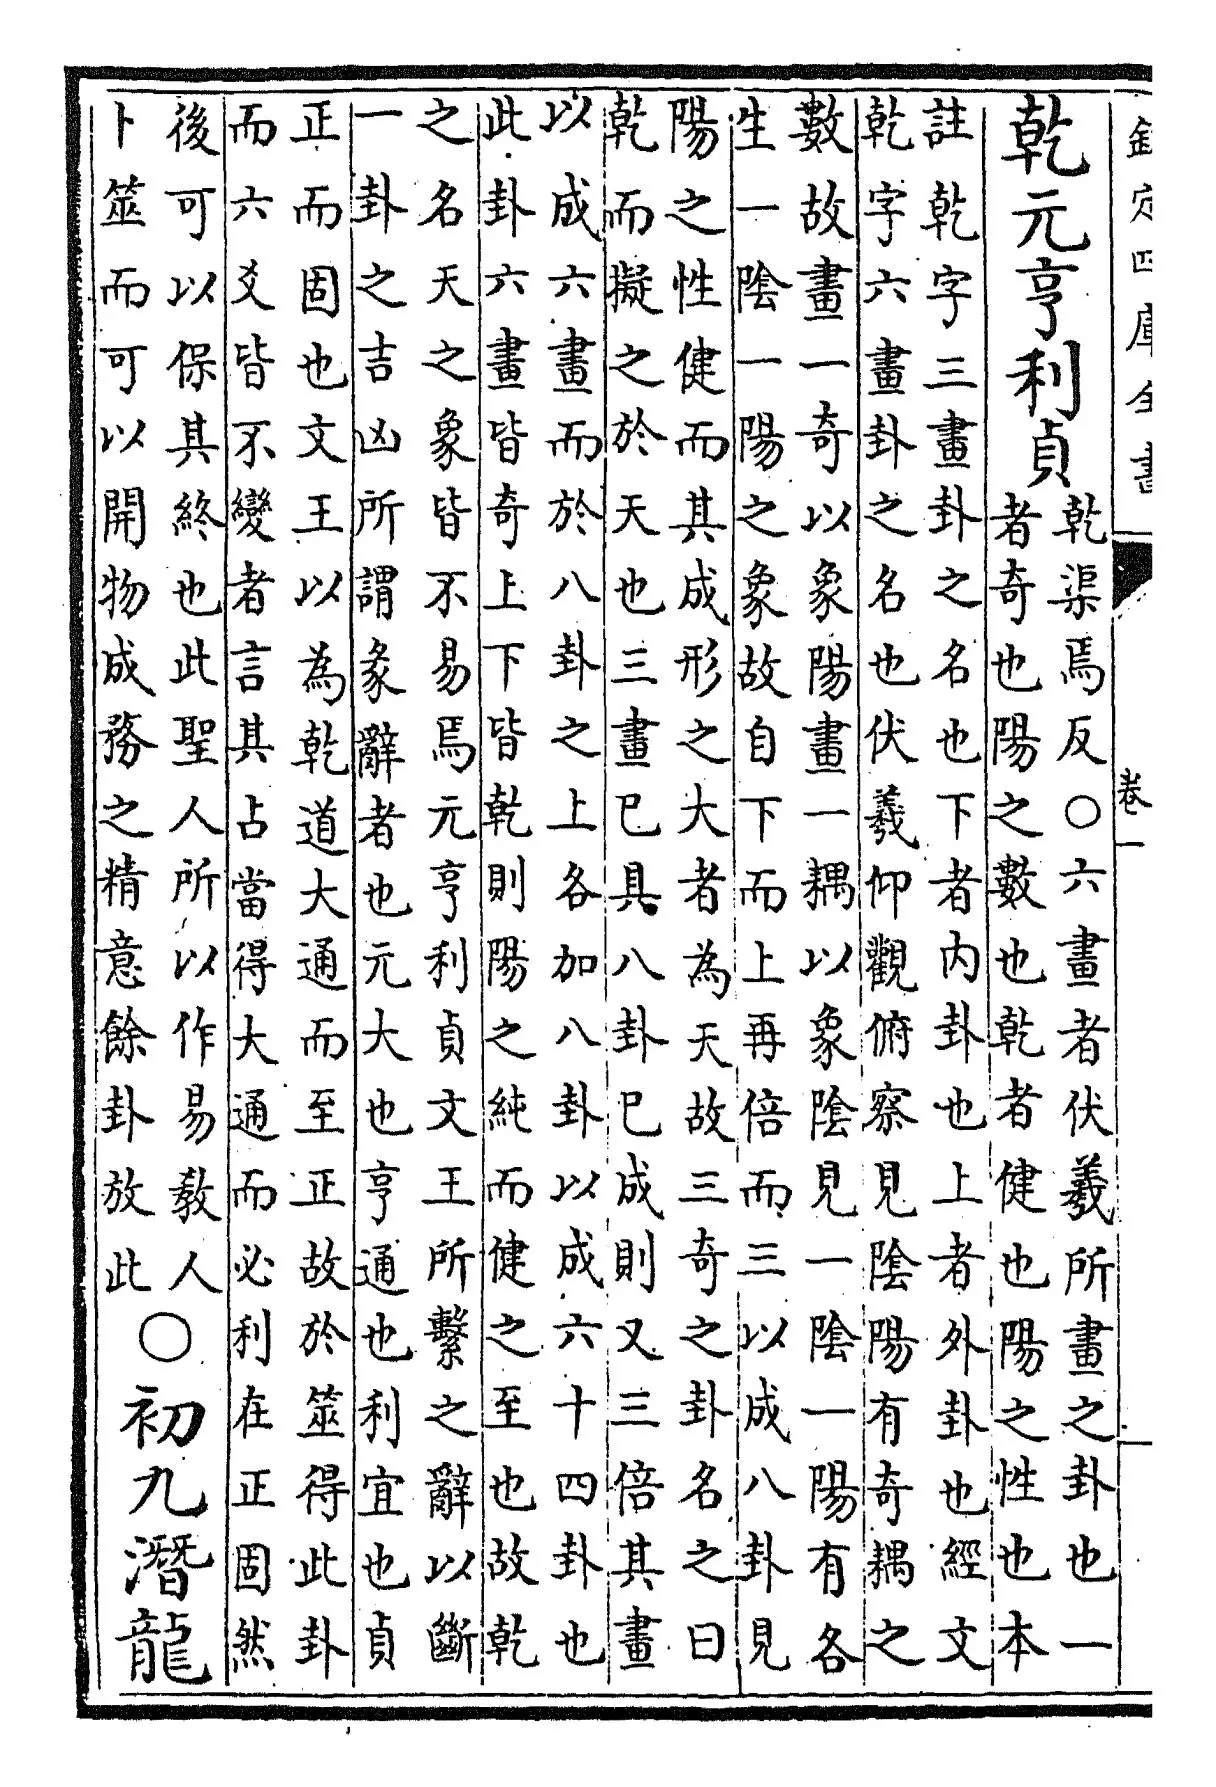 欽定四庫全書
卷一
乾元亨利貞
乾渠焉反○六畫者伏羲所畫之卦也一
者奇也陽之數也乾者健也陽之性也本
註乾字三畫卦之名也下者内卦也上者外卦也經文
乾字六畫卦之名也伏羲仰觀俯察見陰陽有奇耦之
數故畫一奇以象陽畫一耦以象陰見一陰一陽有各
生一陰一陽之象故自下而上再倍而三以成八卦見
陽之性健而其成形之大者為天故三奇之卦名之曰
乾而擬之於天也三畫已具八卦已成則又三倍其畫
以成六畫而於八卦之上各加八卦以成六十四卦也
此卦六畫皆奇上下皆乾則陽之純而健之至也故乾
之名天之象皆不易焉元亨利貞文王所繫之辭以斷
一卦之吉凶所謂彖辭者也元大也亨通也利宜也貞
正而固也文王以為乾道大通而至正故於筮得此卦
而六爻皆不變者言其占當得大通而必利在正固然
後可以保其終也此聖人所以作易教人
卜筮而可以開物成務之精意餘卦放此
○初九潛龍